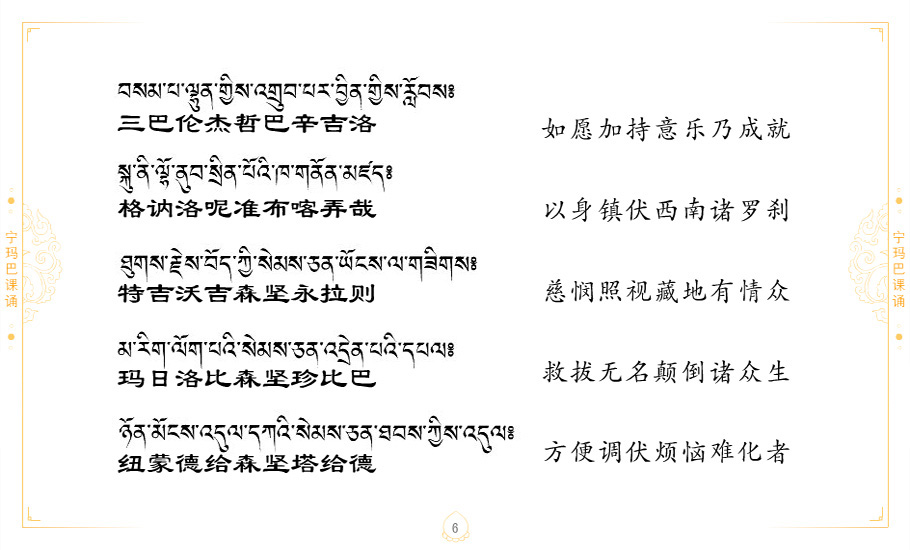 བསམ་པ་ལྷུན་གྱིས་འགྲུབ་པར་བྱིན་གྱིས་རློབས༔
三巴伦杰哲巴辛吉洛
如愿加持意乐乃成就
སྐུ་ནི་ལྷོ་ནུབ་སྲིན་པོའི་ཁ་གནོན་མཛད༔
格讷洛呢准布喀弄哉
以身镇伏西南诸罗刹
ཐུགས་རྗེས་བོད་ཀྱི་སེམས་ཅན་ཡོངས་ལ་གཟིགས༔
特吉沃吉森坚永拉则
慈悯照视藏地有情众
མ་རིག་ལོག་པའི་སེམས་ཅན་འདྲེན་པའི་དཔལ༔
玛日洛比森坚珍比巴
救拔无名颠倒诸众生
ཉོན་མོངས་འདུལ་དཀའི་སེམས་ཅན་ཐབས་ཀྱིས་འདུལ༔
纽蒙德给森坚塔给德
方便调伏烦恼难化者
宁玛巴课诵
宁玛巴课诵
6